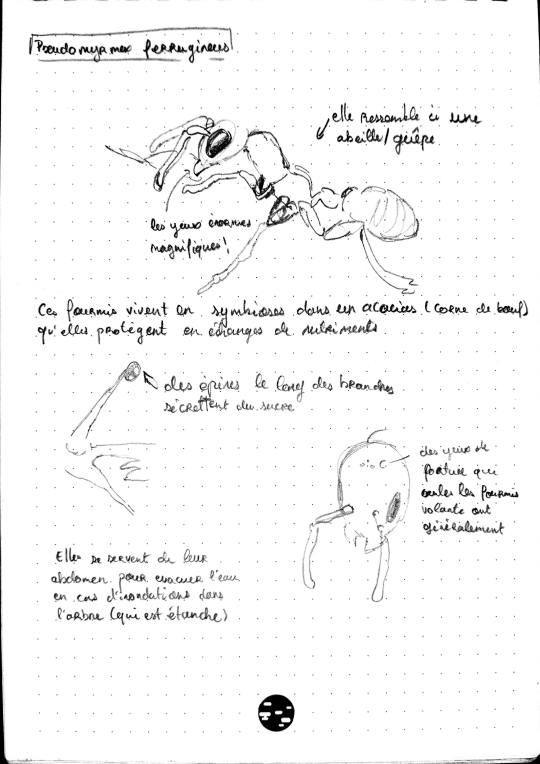 Pseudomyrmex ferrugineus
elle ressemble à une
abeille/guêpe
les yeux énormes
magnifiques!
Ces fourmis vivent en symbioses dans un acacias (corne de bœuf)
qu'elles protègent en échanges de nutriments
des épines le long des branches
sécrettent du sucre
des yeux de
fortune qui
seules les fourmis
volante ont
généralement
Elles se servent de leur
abdomen pour evacuer l'eau
en cas d'inondations dans
l'arbre (qui est étanche)